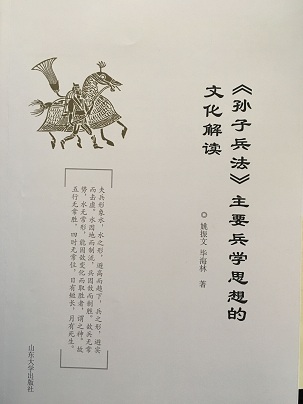 《孙子兵法》主要兵学思想的
文化解读
◎ 姚振文 毕海林 著
夫兵形象水，水之形，避高而趋下，兵之形，避实
而击虚。水因地而制流，兵因敌而制胜。故兵无常
势，水无常形，能因敌变化而取胜者，谓之神。故
五行无常胜，四时无常位，日有短长，月有死生。
山东大学出版社